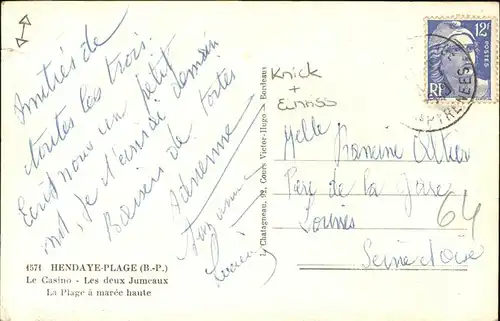 Amitiés de
toutes les trois.
Ecris nous un petit
mot, je t' écrirai demain
Baisers de toutes
Adrienne
Suzanne
Lucie
1571 HENDAYE-PLAGE (B.-P.)
Le Casino - Les deux Jumeaux
La Plage à marée haute
L. Chatagneau, 77, Cours Victor-Hugo - Bordeaux
Knick
+
Einriss
12F
POSTES
RF
PYRENEES
Melle Francine
Parc de la Gare
64
Seine et Oise